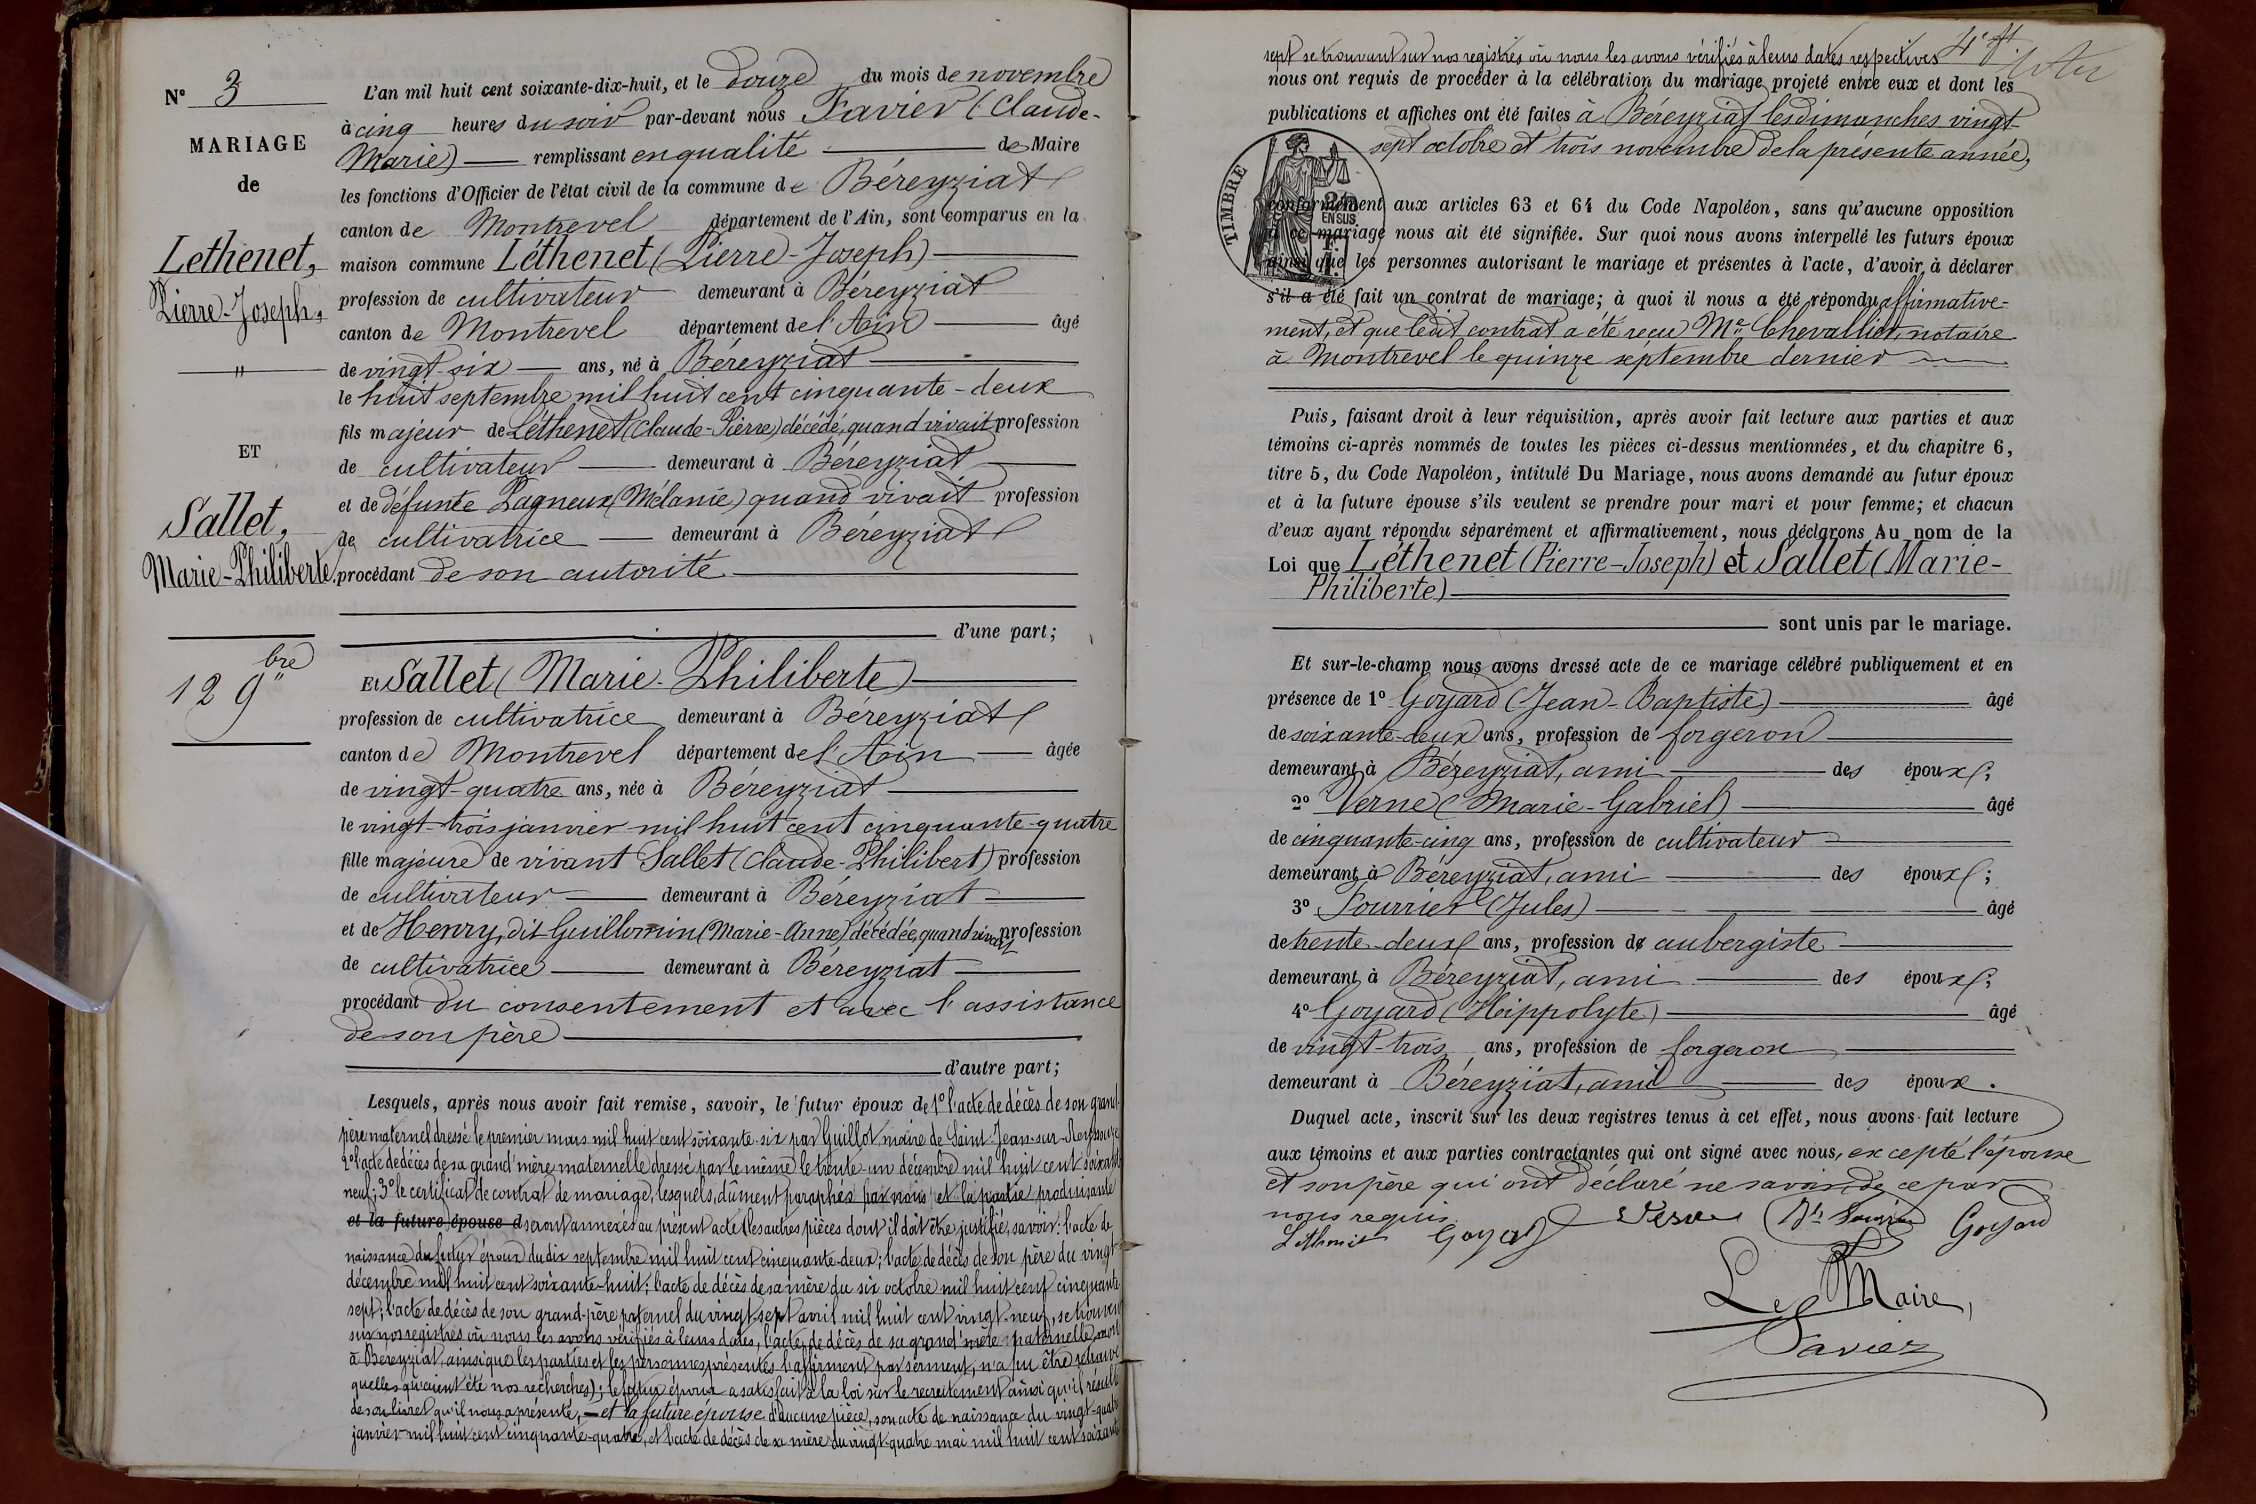 N° 3
MARIAGE
de
Lethenet,
Pierre-Joseph,
"
ET
Sallet,
Marie-Philiberte.
12 9bre
L'an mil huit cent soixante-dix-huit, et le douze du mois de novembre
à cinq heures du soir par-devant nous Favier (Claude-
Marie) remplissant en qualité de Maire
les fonctions d'Officier de l'état civil de la commune de Béreyziat
canton de Montrevel département de l'Ain, sont comparus en la
maison commune Léthenet (Pierre-Joseph)
profession de cultivateur demeurant à Béreyziat
canton de Montrevel département de l'Ain âgé
de vingt-six ans, né à Béreyziat
le huit septembre mil huit cent cinquante-deux
fils majeur de Léthenet (Claude-Pierre) décédé, quand vivait profession
de cultivateur demeurant à Béreyziat
et de défunte Pagneux (Mélanie) quand vivait profession
de cultivatrice demeurant à Béreyziat
procédant de son autorité
d'une part;
Et Sallet (Marie-Philiberte)
profession de cultivatrice demeurant à Béreyziat
canton de Montrevel département de l'Ain âgée
de vingt-quatre ans, née à Béreyziat
le vingt-trois janvier mil huit cent cinquante-quatre
fille majeure de vivant Sallet (Claude-Philibert) profession
de cultivateur demeurant à Béreyziat
et de Henry, dit Guillermin (Marie-Anne) décédée, quand vivait profession
de cultivatrice demeurant à Béreyziat
procédant du consentement et avec l'assistance
de son père
d'autre part;
Lesquels, après nous avoir fait remise, savoir, le futur époux de 1° l'acte de décès de son grand-
père maternel dressé le premier mars mil huit cent soixante-six par Guillot maire de Saint-Jean-sur-Reyssouze
2° l'acte de décès de sa grand'mère maternelle dressé par le même le trente-un décembre mil huit cent soixante
neuf; 3° le certificat de contrat de mariage, lesquels, dûment paraphés par nous et la partie produisante
et la future épouse d seront annexés au présent acte (les autres pièces dont il doit être justifié, savoir: l'acte de
naissance du futur époux du dix septembre mil huit cent cinquante-deux; l'acte de décès de son père du vingt-
décembre mil huit cent soixante-huit; l'acte de décès de sa mère du six octobre mil huit cent cinquante
sept; l'acte de décès de son grand-père paternel du vingt-sept avril mil huit cent vingt-neuf, se trouvent
sur nos registres où nous les avons vérifiés à leurs dates, l'acte de décès de sa grand'mère paternelle, morte
à Béreyziat, ainsi que les parties et les personnes présentes l'affirment par serment, n'a pu être retrouvé
quelles qu'aient été nos recherches); le futur époux a satisfait à la loi sur le recrutement ainsi qu'il résulte
de son livret qu'il nous a présenté, — et la future épouse d'aucune pièce, son acte de naissance du vingt-quatre
janvier mil huit cent cinquante-quatre, et l'acte de décès de sa mère du vingt-quatre mai mil huit cent soixante
sept se trouvant sur nos registres où nous les avons vérifiés à leurs dates respectives
nous ont requis de procéder à la célébration du mariage projeté entre eux et dont les
publications et affiches ont été faites à Béreyziat les dimanches vingt-
sept octobre et trois novembre de la présente année,
TIMBRE
EN SUS
conformément aux articles 63 et 64 du Code Napoléon, sans qu'aucune opposition
à ce mariage nous ait été signifiée. Sur quoi nous avons interpellé les futurs époux
ainsi que les personnes autorisant le mariage et présentes à l'acte, d'avoir à déclarer
s'il a été fait un contrat de mariage; à quoi il nous a été répondu affirmative-
ment, et que ledit contrat a été reçu Me Chevallier, notaire
à Montrevel le quinze septembre dernier
Puis, faisant droit à leur réquisition, après avoir fait lecture aux parties et aux
témoins ci-après nommés de toutes les pièces ci-dessus mentionnées, et du chapitre 6,
titre 5, du Code Napoléon, intitulé Du Mariage, nous avons demandé au futur époux
et à la future épouse s'ils veulent se prendre pour mari et pour femme; et chacun
d'eux ayant répondu séparément et affirmativement, nous déclarons Au nom de la
Loi que Léthenet (Pierre-Joseph) et Sallet (Marie-
Philiberte)
sont unis par le mariage.
Et sur-le-champ nous avons dressé acte de ce mariage célébré publiquement et en
présence de 1° Goyard (Jean-Baptiste) âgé
de soixante-deux ans, profession de forgeron
demeurant à Béreyziat, ami des époux;
2° Verne (Marie-Gabriel) âgé
de cinquante-cinq ans, profession de cultivateur
demeurant à Béreyziat, ami des époux;
3° Fourrier (Jules) âgé
de trente-deux ans, profession de aubergiste
demeurant à Béreyziat, ami des époux;
4° Goyard (Hippolyte) âgé
de vingt-trois ans, profession de forgeron
demeurant à Béreyziat, ami des époux.
Duquel acte, inscrit sur les deux registres tenus à cet effet, nous avons fait lecture
aux témoins et aux parties contractantes qui ont signé avec nous, excepté l'épouse
et son père qui ont déclaré ne savoir, de ce par
nous requis
Léthenet Goyard Verne Goyard
Le Maire,
Favier